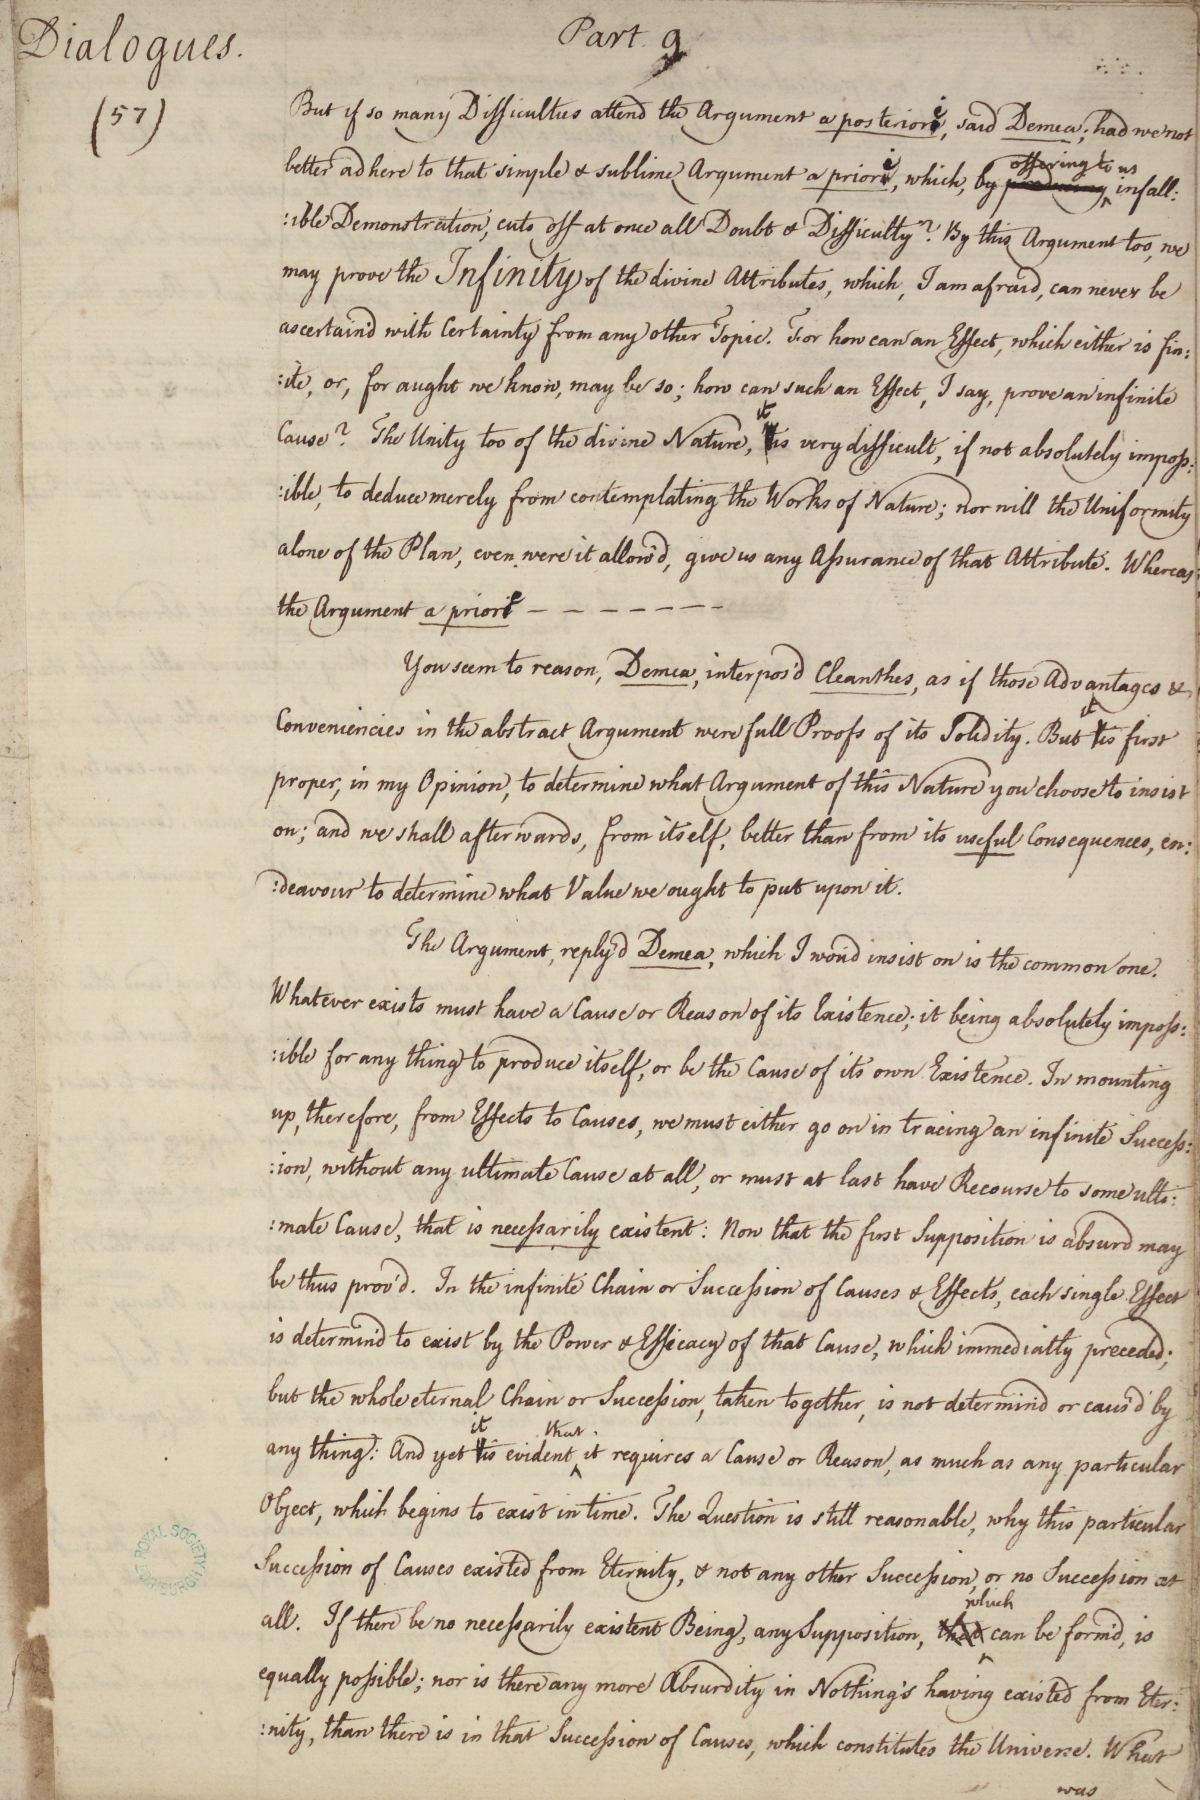 Dialogues.
Part. 9
(57)
But if so many Difficulties attend the Argument a posteriori, said Demea; had we not
better adhere to that simple & sublime Argument a priori, which, by offering to us infall:
:ible Demonstration, cuts off at once all Doubt & Difficulty? By this Argument too, we
may prove the Infinity of the divine Attributes, which, I am afraid, can never be
ascertain'd with Certainty from any other Topic. For how can an Effect, which either is fin:
:ite, or, for aught we know, may be so; how can such an Effect, I say, prove an infinite
Cause? The Unity too of the divine Nature, it is very difficult, if not absolutely imposs:
:ible, to deduce merely from contemplating the Works of Nature; nor will the Uniformity
alone of the Plan, even were it allow'd, give us any Assurance of that Attribute. Whereas
the Argument a priori – – – – – – – –
You seem to reason, Demea, interpos'd Cleanthes, as if those Advantages &
Conveniencies in the abstract Argument were full Proofs of its Solidity. But it is first
proper, in my Opinion, to determine what Argument of this Nature you choose to insist
on; and we shall afterwards, from itself, better than from its useful Consequences, en:
:deavour to determine what Value we ought to put upon it.
The Argument, reply'd Demea, which I wou'd insist on is the common one.
Whatever exists must have a Cause or Reason of its Existence; it being absolutely imposs:
:ible for any thing to produce itself, or be the Cause of its own Existence. In mounting
up, therefore, from Effects to Causes, we must either go on in tracing an infinite Success:
:ion, without any ultimate Cause at all, or must at last have Recourse to some ulti:
:mate Cause, that is necessarily existent: Now that the first Supposition is absurd may
be thus prov'd. In the infinite Chain or Succession of Causes & Effects, each single Effect
is determin'd to exist by the Power & Efficacy of that Cause, which immediatly preceded;
but the whole eternal Chain or Succession, taken together, is not determin'd or caus'd by
any thing: And yet it is evident that it requires a Cause or Reason, as much as any particular
Object, which begins to exist in time. The Question is still reasonable, why this particular
Succession of Causes existed from Eternity, & not any other Succession, or no Succession at
all. If there be no necessarily existent Being, any Supposition, that which can be form'd, is
equally possible; nor is there any more Absurdity in Nothing's having existed from Eter:
:nity, than there is in that Succession of Causes, which constitutes the Universe. What
was
ROYAL SOCIETY
EDINBURGH